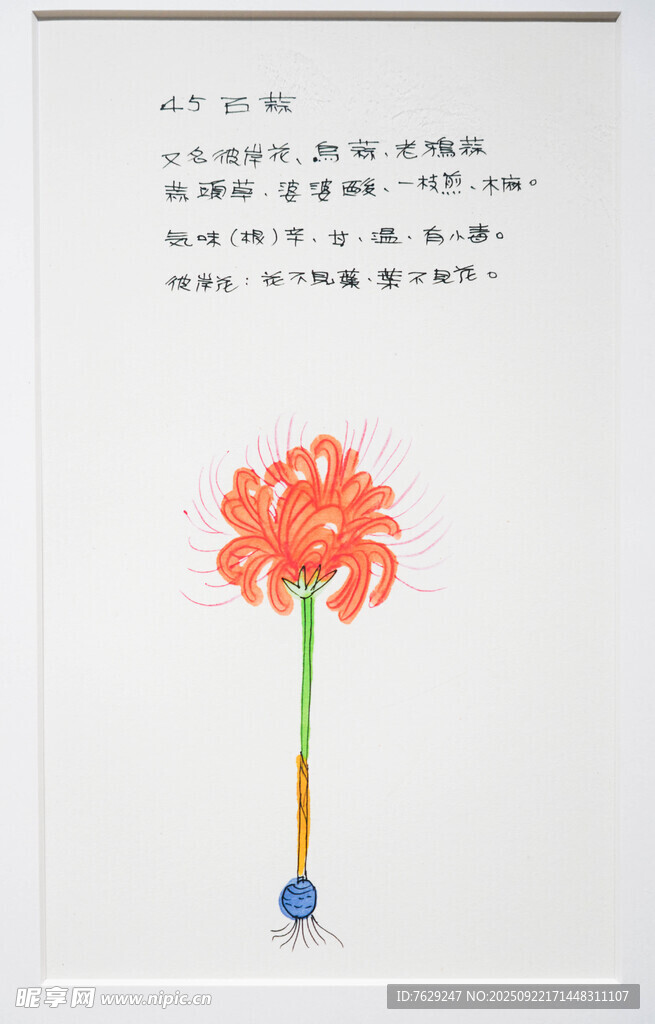 45 石蒜
又名彼岸花、烏蒜、老鴉蒜
蒜頭草、婆婆酸、一枝煎、木麻。
気味(根)辛、甘、温、有小毒。
彼岸花:花不見葉、葉不見花。
昵享网 www.nipic.cn
ID:7629247 NO:20250922171448311107